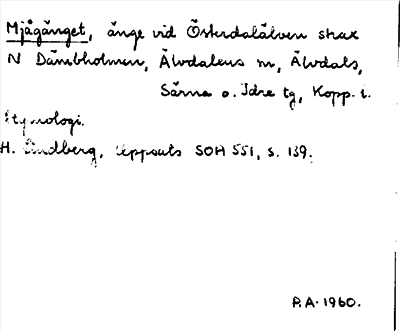 Mjågänget, änge vid Österdalälven strax
N Dämbholmen, Älvdalens sn, Älvdals,
Särna o. Idre tg, Kopp. l.
Etymologi.
H. Lindberg, Uppsats SOH 551, s. 139.
P.A. 1960.